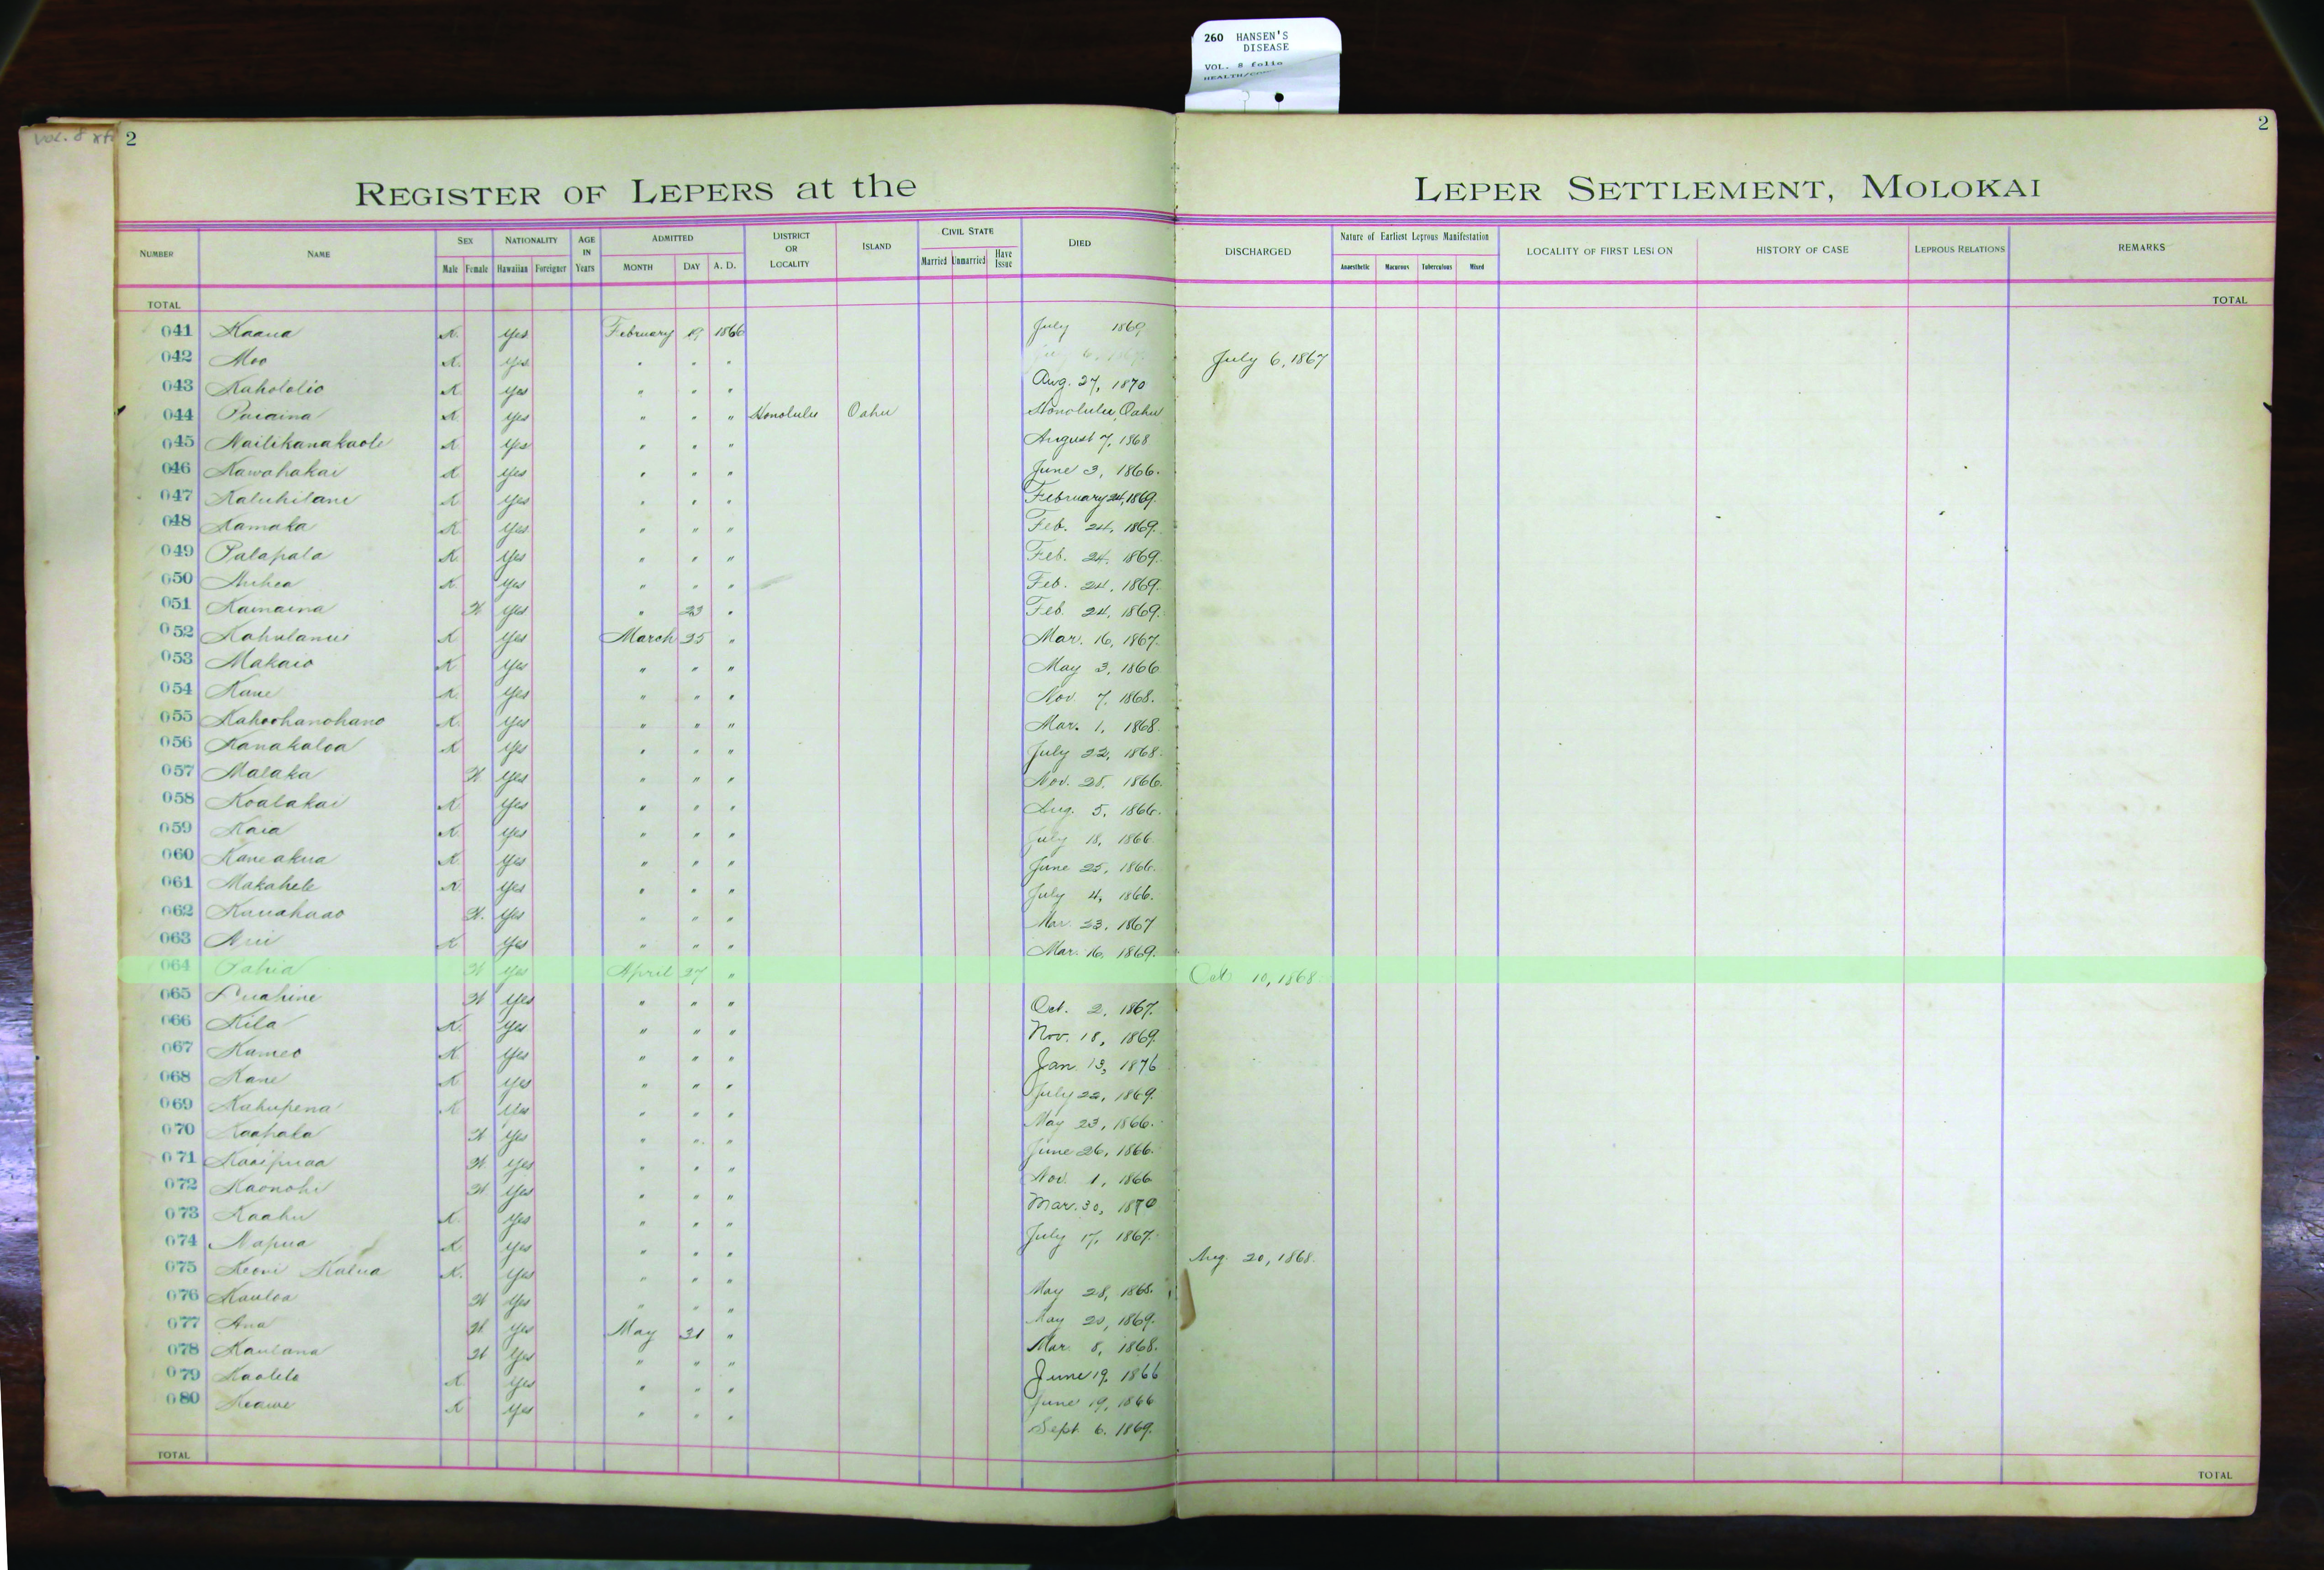 260 HANSEN'S
DISEASE
VOL. 8 folio
Vol. 8
2
2
REGISTER OF LEPERS at the LEPER SETTLEMENT, MOLOKAI
NUMBER NAME SEX NATIONALITY AGE IN Years ADMITTED DISTRICT OR LOCALITY ISLAND CIVIL STATE DIED DISCHARGED Nature of Earliest Leprous Manifestation LOCALITY OF FIRST LESION HISTORY OF CASE LEPROUS RELATIONS REMARKS
Male Female Hawaiian Foreigner MONTH DAY A. D. Married Unmarried Have Issue Anaesthetic Macurous Tuberculous Mixed
TOTAL TOTAL
041 Kaaua K. Yes February 19 1866 July 1869
042 Moo K. Yes " " " July 6, 1867
043 Kahololio K Yes " " " Aug. 27, 1870
044 K Yes " " " Honolulu Oahu Honolulu, Oahu
045 Nailikanakaole K Yes " " " August 7, 1868
046 Kawahakai K Yes " " " June 3, 1866.
047 Kaluhilani K Yes " " " February 24, 1869.
048 Kamaka K Yes " " " Feb. 24, 1869.
049 Palapala K. Yes " " " Feb. 24, 1869.
050 K. Yes " " " Feb. 24, 1869.
051 Kamaina W Yes " 23 " Feb. 24, 1869.
052 Kahulanui K Yes March 25 " Mar. 16, 1867.
053 Makaio K Yes " " " May 3, 1866
054 Kane K. Yes " " " Nov. 7, 1868.
055 Kahoohanohano K. Yes " " " Mar. 1, 1868.
056 Kanakaloa K Yes " " " July 22, 1868.
057 Malaka W Yes " " " Nov. 28, 1866.
058 Koalakai K Yes " " " Aug. 5, 1866.
059 Kaia K. Yes " " " July 18, 1866.
060 Kaneakua K Yes " " " June 25, 1866.
061 Makahele K Yes " " " July 4, 1866.
062 Kauahaao W. Yes " " " Mar. 23, 1867
063 K Yes " " " Mar. 16, 1869.
064 Pahia W Yes April 27 " Oct. 10, 1868.
065 Puahine W Yes " " " Oct. 2, 1867.
066 Kila K. Yes " " " Nov. 18, 1869.
067 Kameo K Yes " " " Jan. 13, 1876
068 Kane K Yes " " " July 22, 1869.
069 Kahupena K Yes " " " May 23, 1866.
070 Kaahala W Yes " " " June 26, 1866.
071 Kaaipuaa W. Yes " " " Nov. 1, 1866
072 Kaonohi W Yes " " " Mar. 30, 1870
073 Kaahu K. Yes " " " July 17, 1867.
074 Napua K Yes " " " Aug. 20, 1868.
075 Keoni Kalua K. Yes " " " May 28, 1868.
076 Kauloa W Yes " " " May 20, 1869.
077 Ana W. Yes May 31 " Mar. 8, 1868.
078 Kaulana W Yes " " " June 19, 1866
079 Kaolelo K Yes " " " June 19, 1866
080 Keawe K Yes " " " Sept. 6, 1869.
TOTAL TOTAL